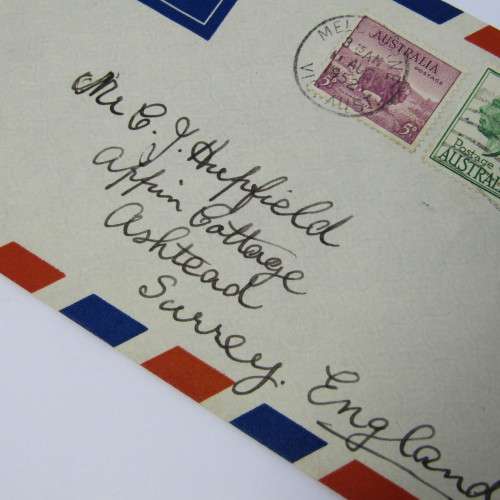 AUSTRALIA
POSTAGE
5D
Postage
AUSTRALIA
Mr C. J. Hupfield
Appin Cottage
Ashtead
Surrey.
England